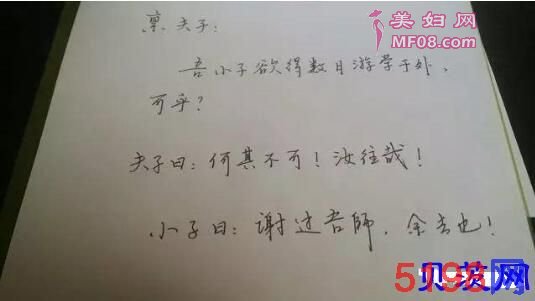 美妇网
MF08.com
禀夫子：
吾小子欲得数日游学于外，
可乎？
夫子曰：何其不可！汝往哉！
小子曰：谢过吾師，余去也！
贝茨网